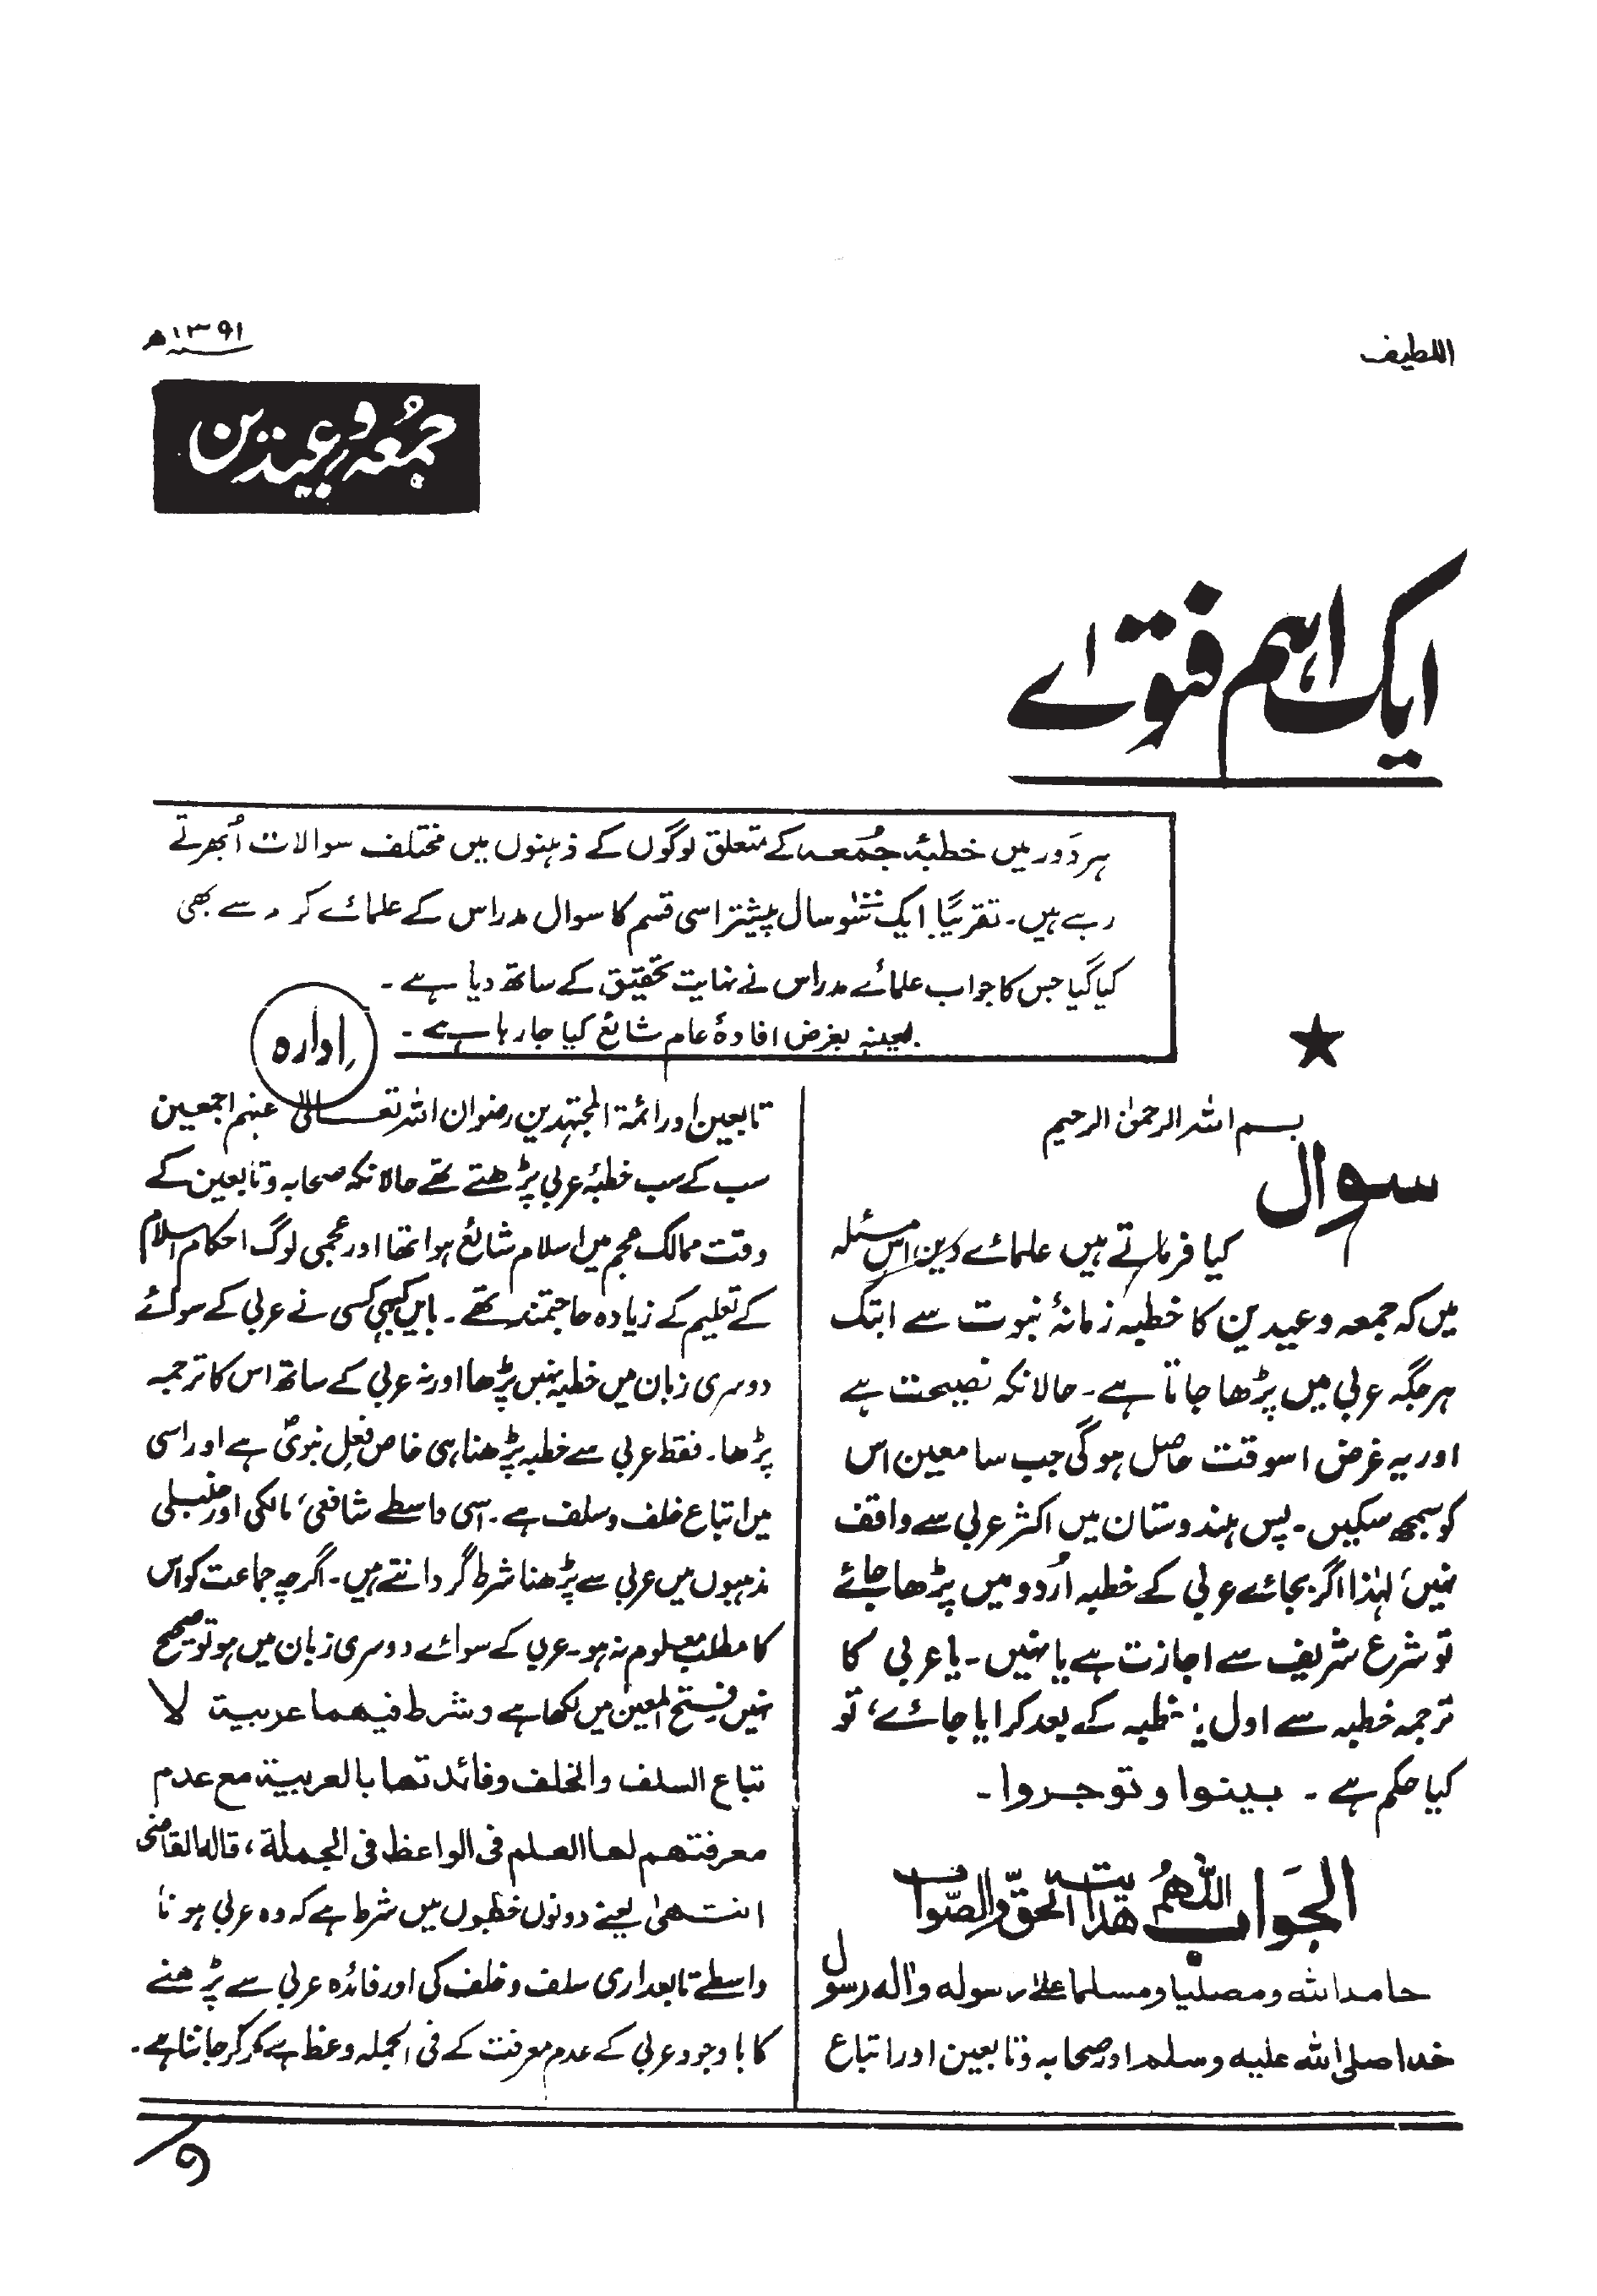 اللطیف
۱۳۹۱ھ
جمُعہ و عیدین
ایک اہم فتوےٰ
ہر دَور میں خطبۂ جمُعہ کے متعلق لوگوں کے ذہنوں میں مختلف سوالات اُبھرتے
رہے ہیں۔ تقریبًا ایک سَو سال پیشتر اسی قسم کا سوال مدراس کے علمائے کر سے بھی
کیا گیا جس کا جواب علمائے مدراس نے نہایت تحقیق کے ساتھ دیا ہے۔
بعینہٖ بغرض افادۂ عام شائع کیا جا رہا ہے۔
ادارہ
بسم اللہ الرحمٰن الرحیم
سوال
کیا فرماتے ہیں علمائے دین اس مسئلہ
میں کہ جمعہ و عیدین کا خطبہ زمانۂ نبوت سے ابتک
ہر جگہ عربی میں پڑھا جاتا ہے۔ حالانکہ نصیحت ہے
اور یہ غرض اسوقت حاصل ہوگی جب سامعین اس
کو سمجھ سکیں۔ پس ہندوستان میں اکثر عربی سے واقف
نہیں، لہٰذا اگر بجائے عربی کے خطبہ اُردو میں پڑھا جائے
تو شرع شریف سے اجازت ہے یا نہیں۔ یا عربی کا
ترجمہ خطبہ سے اول یا خطبہ کے بعد کرایا جائے، تو
کیا حکم ہے۔ بینوا و توجروا۔
الجَواب اللّٰھُمَّ ھدایت الحقّ والصّواب
حامداللہ ومصلیا ومسلما علیٰ رسولہ واٰلہ رسول
خدا صلی اللہ علیہ وسلم اور صحابہ و تابعین اور اتباع
تابعین اور ائمۃ المجتہدین رضوان اللہ تعالیٰ عنہم اجمعین
سب کے سب خطبۂ عربی پڑھتے تھے حالانکہ صحابہ و تابعین کے
وقت ممالک عجم میں اسلام شائع ہوا تھا اور عجمی لوگ احکام اسلام
کے تعلیم کے زیادہ حاجتمند تھے۔ با ایں کبھی کسی نے عربی کے سوائے
دوسری زبان میں خطبہ نہیں پڑھا اور نہ عربی کے ساتھ اس کا ترجمہ
پڑھا۔ فقط عربی سے خطبہ پڑھنا ہی خاص فعلِ نبویؐ ہے اور اسی
میں اتباع خلف و سلف ہے۔ اسی واسطے شافعی، مالکی اور حنبلی
مذہبوں میں عربی سے پڑھنا شرط گردانتے ہیں۔ اگرچہ جماعت کو اس
کا مطلب معلوم نہ ہو۔ عربی کے سوائے دوسری زبان میں ہو تو صحیح
نہیں فتح المعین میں لکھا ہے وشرط فیھما عربیۃ لا
تباع السلف والخلف وفائدتھا بالعربیۃ مع عدم
معرفتھم لھا العلم فی الواعظ فی الجملۃ، قالہ القاضی
انتھیٰ یعنے دونوں خطبوں میں شرط ہے کہ وہ عربی ہونا
واسطے تابعداری سلف و خلف کی اور فائدہ عربی سے پڑھنے
کا باوجود عربی کے عدم معرفت کے فی الجملہ وعظ ہے کر کر جاننا ہے۔
۹